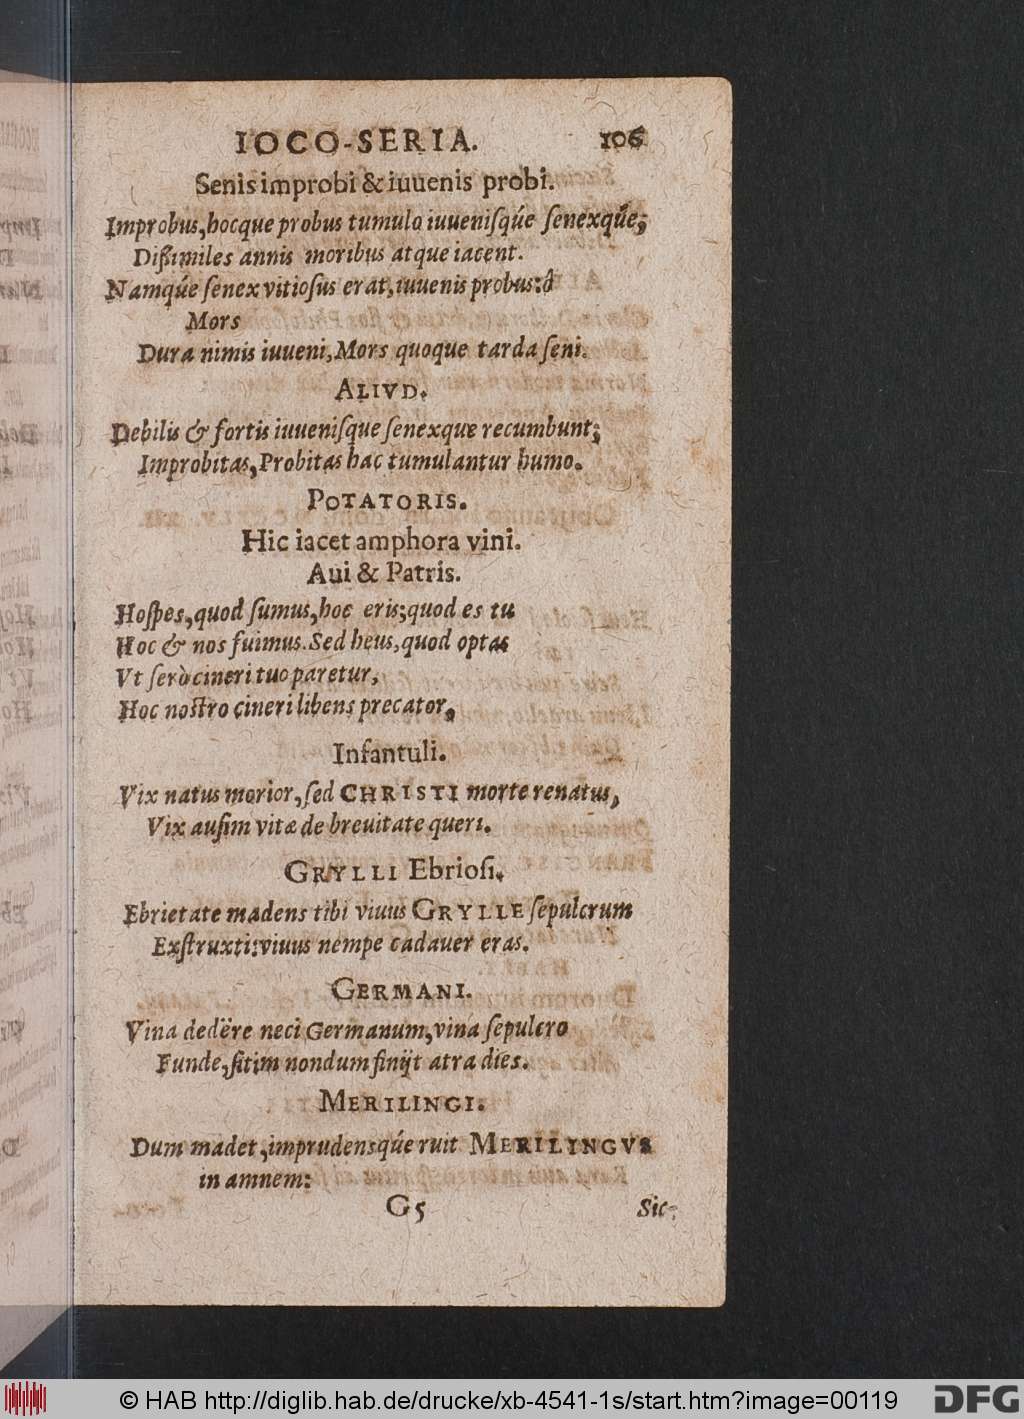 IOCO-SERIA. 106
Senis improbi & iuuenis probi.
Improbus, hocque probus tumulo iuueniſqúe ſenexqúe;
Diſſimiles annis moribus atque iacent.
Namqúe ſenex vitioſus erat, iuuenis probus: ô
Mors
Dura nimis iuueni, Mors quoque tarda ſeni.
ALIVD.
Debilis & fortis iuueniſque ſenexque recumbunt;
Improbitas, Probitas hac tumulantur humo.
POTATORIS.
Hic iacet amphora vini.
Aui & Patris.
Hoſpes, quod ſumus, hoc eris; quod es tu
Hoc & nos fuimus. Sed heus, quod optas
Vt ſerò cineri tuo paretur,
Hoc noſtro cineri libens precator.
Infantuli.
Vix natus morior, ſed CHRISTI morte renatus,
Vix auſim vitæ de breuitate queri.
GRYLLI Ebrioſi.
Ebrietate madens tibi viuus GRYLLE ſepulcrum
Exſtruxti: viuus nempe cadauer eras.
GERMANI.
Vina dedëre neci Germanum, vina ſepulcro
Funde, ſitim nondum finijt atra dies.
MERILINGI.
Dum madet, imprudensqúe ruit MERILINGVS
in amnem:
G5 Sic
© HAB http://diglib.hab.de/drucke/xb-4541-1s/start.htm?image=00119 DFG